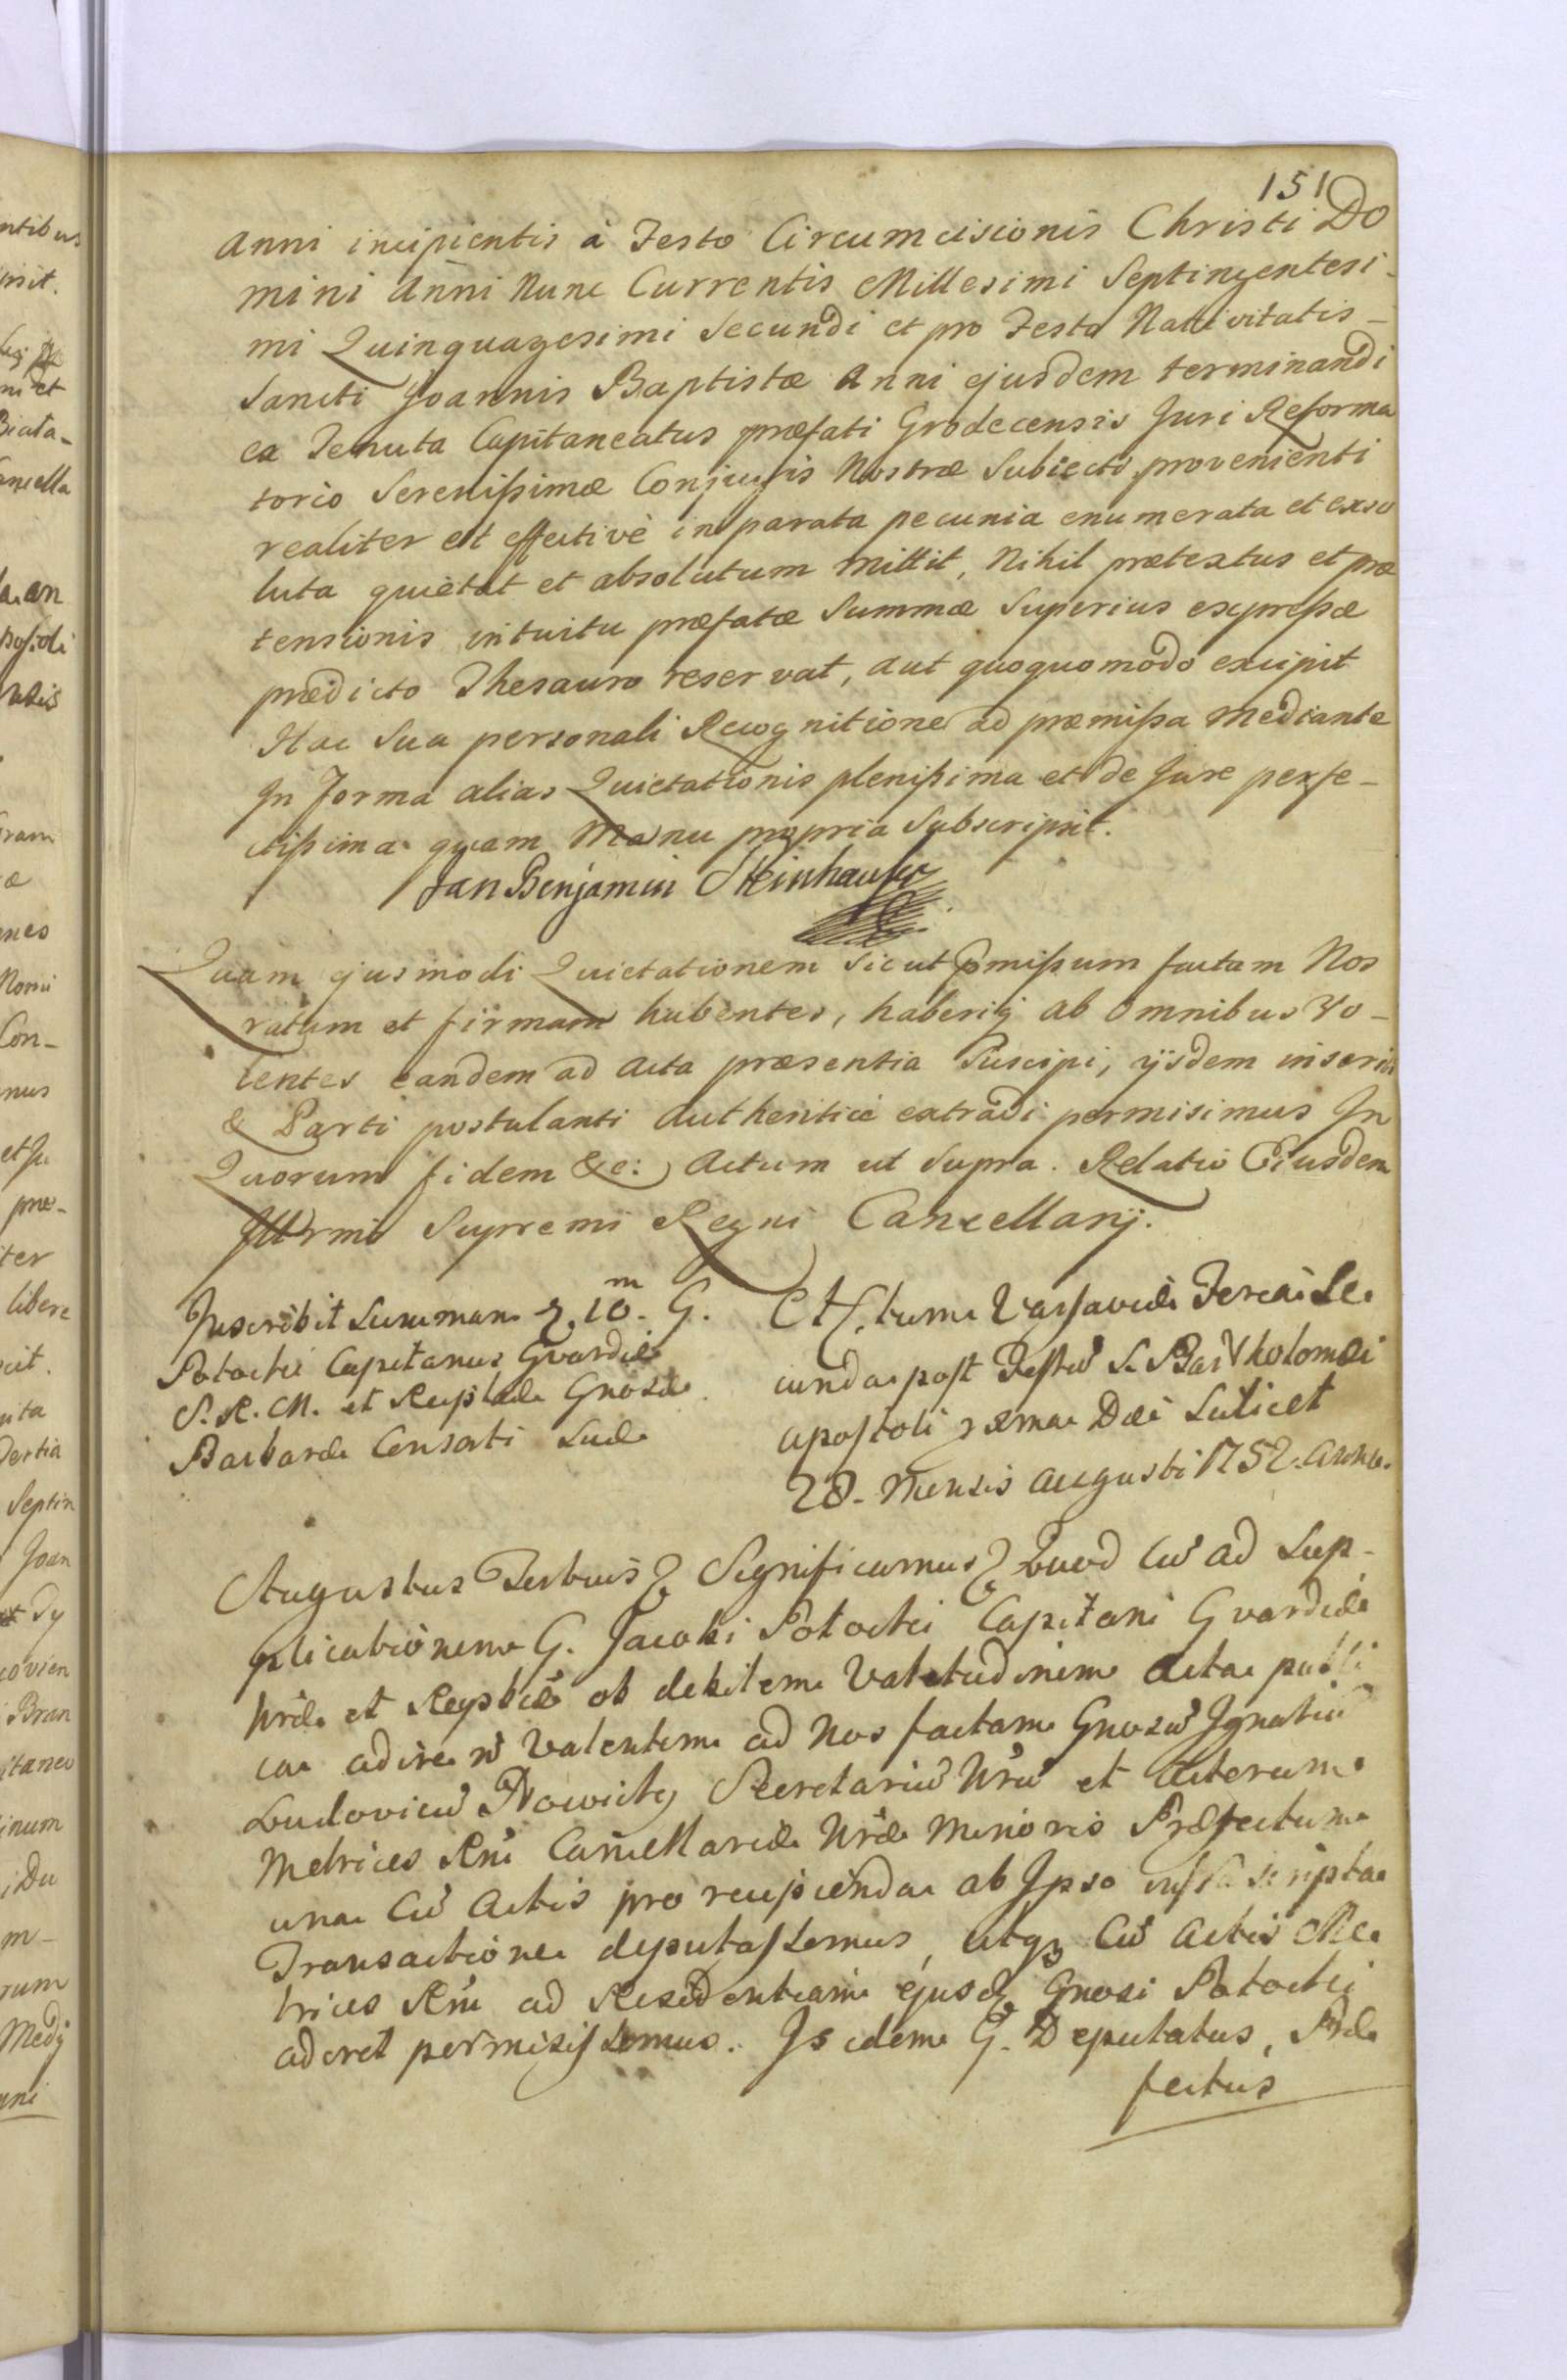 151
Anni incipientis à Festo Circumcisionis Christi Do
mini Anni Nunc Currentis Millesimi Septingentesi-
mi Quinquagesimi Secundi et pro Festo Nativitatis-
Sancti Joannis Baptistæ Anni ejusdem terminandi
ea Tenuta Capitaneatus præfati Grodecensis Juri Reforma
torio Serenissimæ Conjugis Nostræ Subiecto, provenienti
realiter et effectivè in parata pecunia enumerata et exso
luta quietat et absolutum mittit, Nihil prætextus et præ
tensionis intuitu præfatæ Summæ Superius expressæ
prædicto Thesauro reservat, aut quoquomodo excipit
Hac Sua personali Recognitione ad præmissa mediante
In Forma alias Quietationis plenissima et de Jure perfe-
ctissima quam Manu propria Subscripsit.
Jan Benjamin Steinhauser
Quam ejusmodi Quietationem Sicut pmissum factam Nos
ratam et firmam habentes, haberiq ab omnibus Vo-
lentes eandem ad Acta præsentia Suscipi, ijsdem inseri
& Parti postulanti Authenticè extradi permisimus In
Quorum fidem &c: Actum ut Supra. Relatio Eiusdem
Illrmi Supremi Regni Cancellarij.
Inscribit Summam 10m G.
Potocki Capitanus Gvardiæ
S. R. M. et Reiplcæ Gnosæ
Barbaræ Consorti Suæ
Actum Varsaviæ Feria Se
cunda post Festū S. Bartholomæi
Apostoli xma Die Scilicet
28. Mensis Augusti 1752. Anno.
Augustus Tertius Significamus Quod Cū ad Sup-
plicationem G. Jacobi Potocki Capitani Gvardiæ
Nræ et Reypblcæ ob debilem Valetudinem Acta publi
ca adire ñ Valentem ad Nos factam Gnosū Ignatiū
Ludovicū Nowicky Secretariū Nrū et Actorum
Metrices Rni Cancellariæ Nræ Minoris Præfectum
una Cū Actis pro recipienda ab Ipso infra scripta
Transactione deputassemus, atq Cū Actis Me
trices Rni ad Residentiam ejusd Gnosi Potocki
adiret permisissemus. Is idem G. Deputatus, Præ
fectus